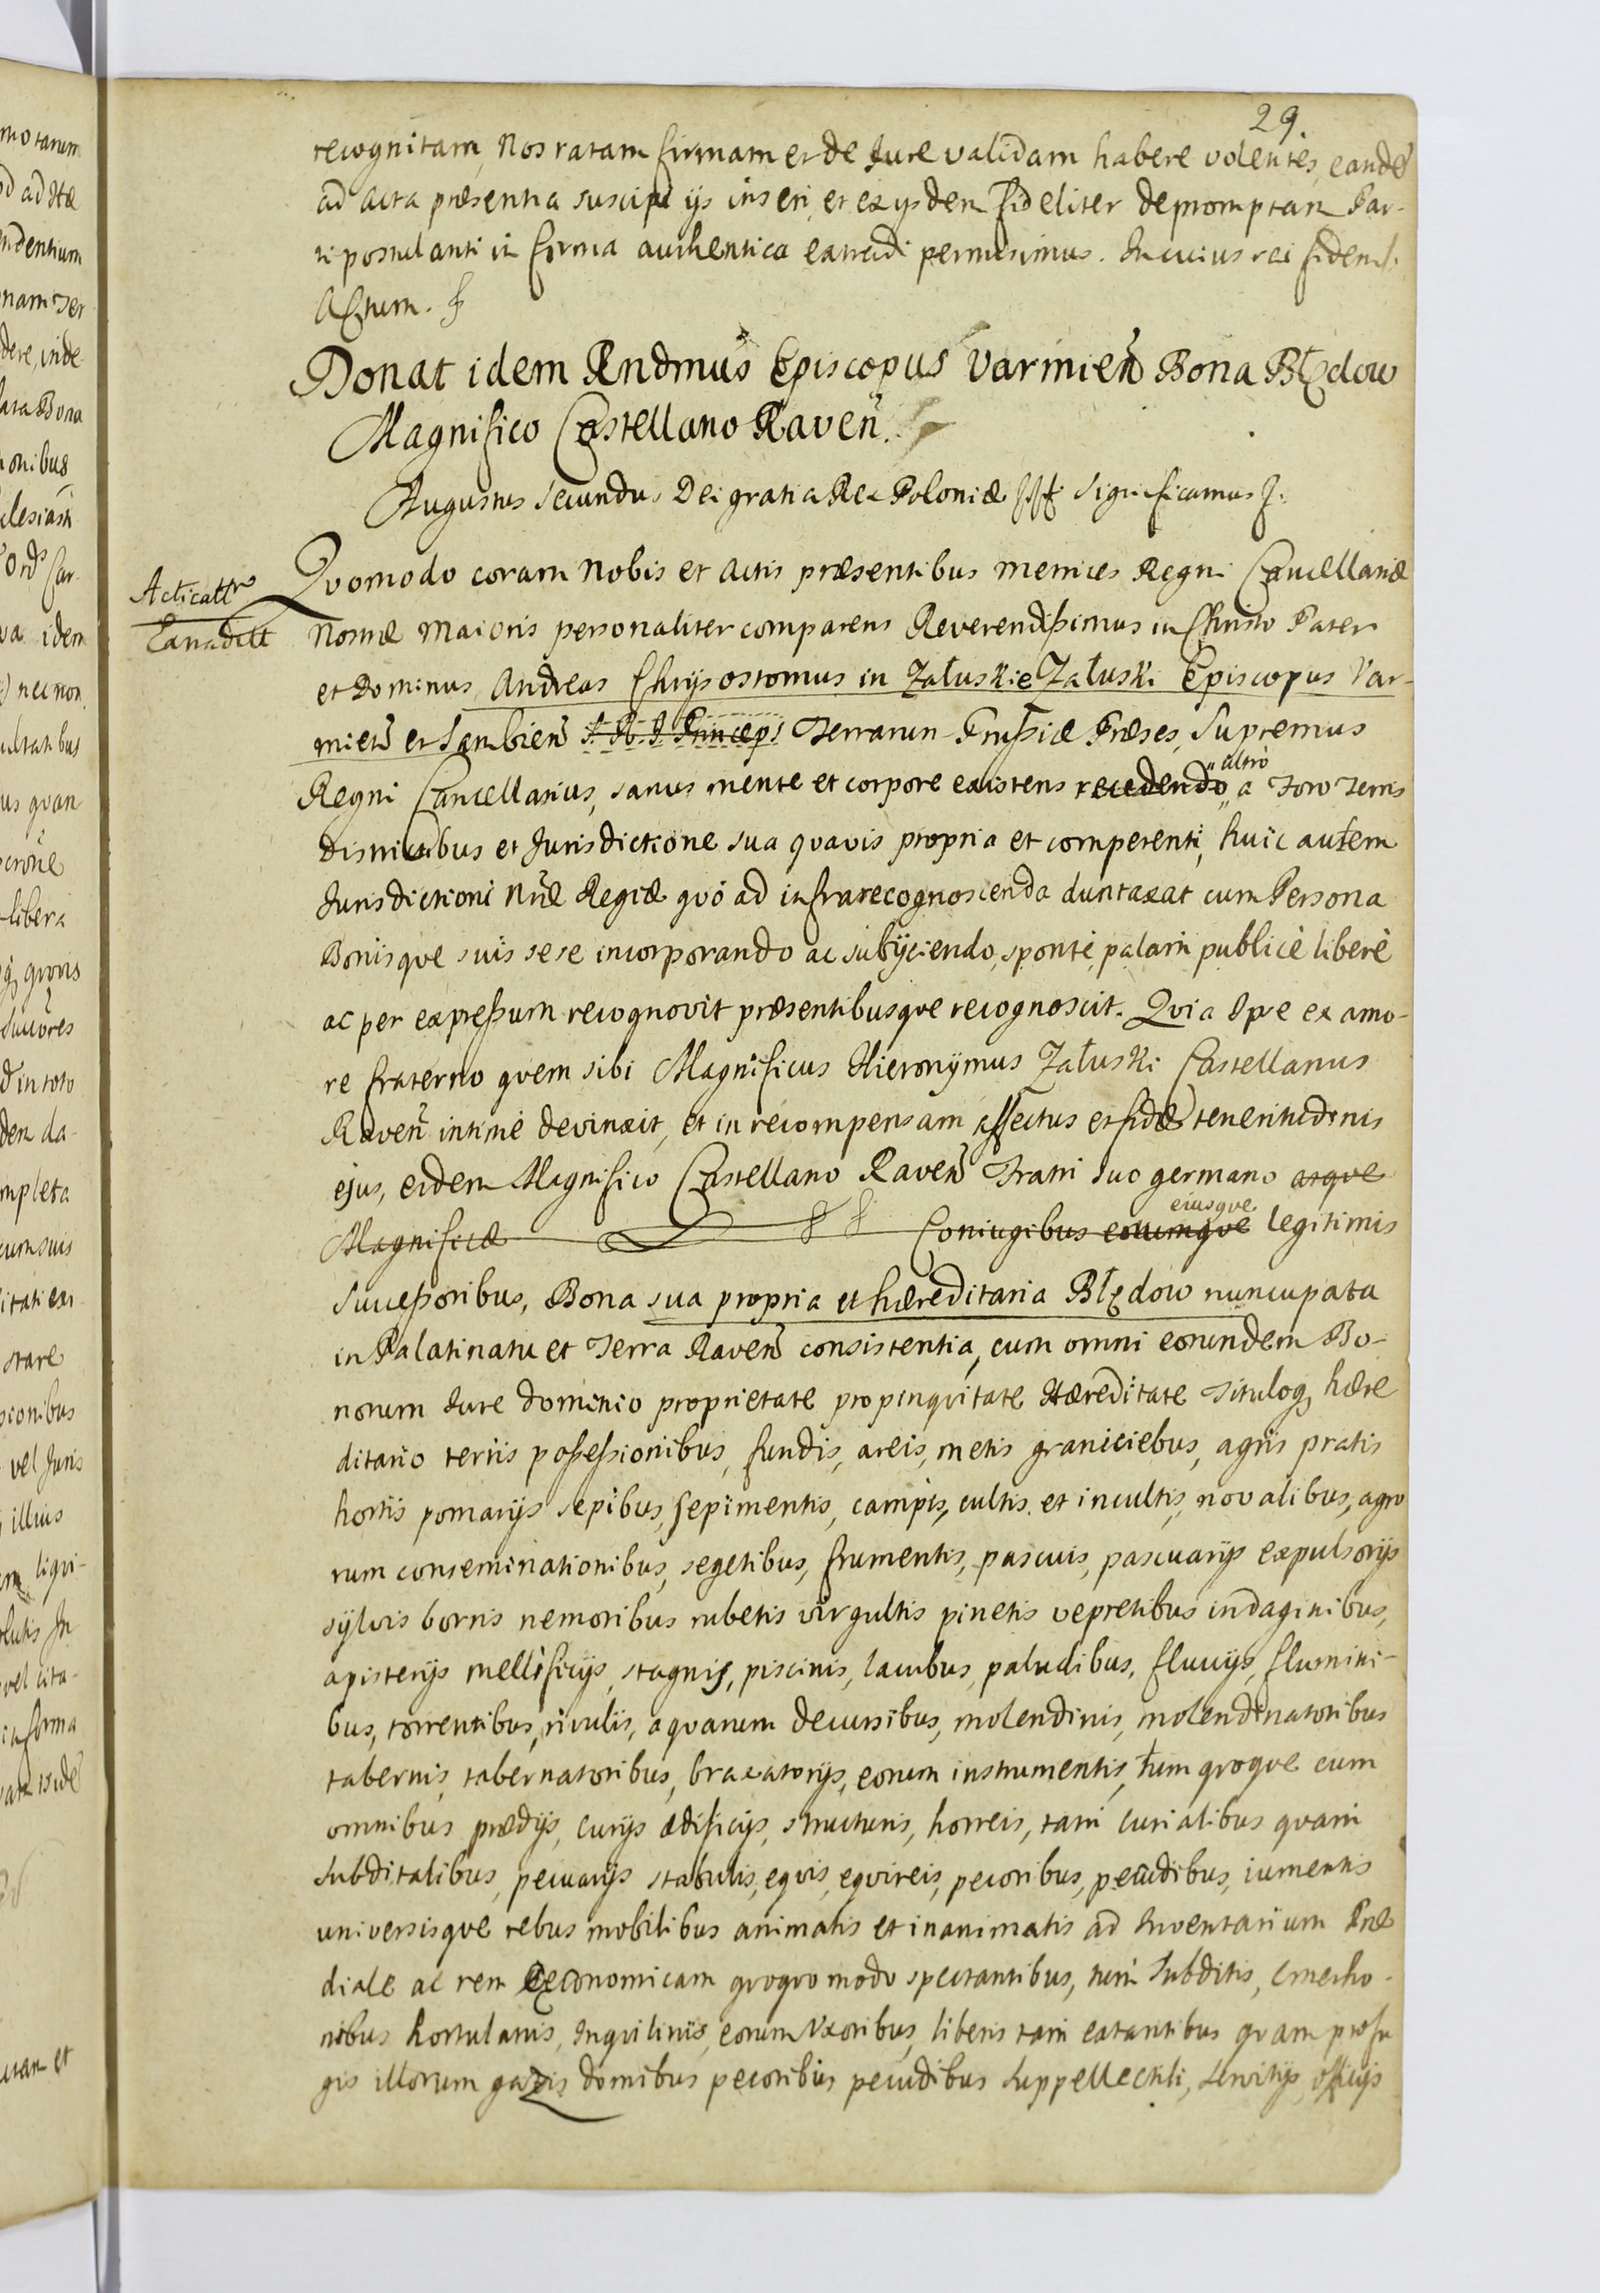 29.
recognitam, Nos ratam firmam et de Jure validam habere volentes, eandē
ad acta præsentia suscipi ijs inseri, et ex ijsdem fideliter depromptam Par-
ti postulanti in forma authentica extradi permisimus. In cuius rei fidem
Actum.
Donat idem Rndmus Episcopus Varmien̄ Bona Błędow
Magnifico Castellano Raven̄.
Augustus Secundus Dei gratia Rex Poloniæ Significamus
Acticatt͞r
Extradett
Qvomodo coram Nobis et Actis præsentibus metrices Regni Cancellariæ
Nostræ Maioris personaliter comparens Reverendißimus in Christo Pater
et Dominus Andreas Chrysostomus in Załuskie Załuski Episcopus Var-
mien̄ et Sambien̄ S. R. I. Princeps Terrarum Prußiæ Præses, Supremus
Regni Cancellarius, sanus mente et corpore existens recedendo „ altrò
„ a Foro Terris
Districtibus et Jurisdictione sua qvavis propria et competenti, huic autem
Jurisdictioni Nr̄æ Regiæ qvò ad infrarecognoscenda duntaxat cum Persona
Bonisqve suis sese incorporando ac subijciendo, spontè, palàm publicè liberè
ac per expreßum recognovit præsentibusqve recognoscit. Qvia Ipse ex amo-
re fraterno qvem sibi Magnificus Hieronymus Załuski Castellanus
Raven̄ intimè devinxit, et in recompensam affectus et fidæ teneritudinis
ejus, eidem Magnifico Castellano Raven̄ Fratri suo germano atqve
Magnificæ Coniugibus eorumqve eiusqve legitimis
Succeßoribus, Bona sua propria et hæreditaria Błędow nuncupata
in Palatinatu et Terra Raven̄ consistentia, cum omni eorundem Bo-
norum Jure dominio proprietate propinqvitate Hæreditate Tituloq, hære
ditario terris poßeßionibus, fundis, areis, metis graniciebus, agris pratis
hortis pomarijs sepibus, sepimentis, campis, cultis et incultis, novalibus, agro
rum conseminationibus, segetibus, frumentis, pascuis, pascuarijs expulsorijs
sylvis borris nemoribus rubetis virgultis pinetis vepretibus indaginibus,
apisterijs mellificijs, stagnis, piscinis, lacubus, paludibus, fluvijs, flumini-
bus, torrentibus, rivulis, aqvarum decursibus, molendinis, molendinatoribus
tabernis, tabernatoribus, braxatorijs, eorum instrumentis, tum qvoqve cum
omnibus prædijs, curijs ædificijs, structuris, horreis, tam curialibus qvam
Subditalibus, pecuarijs stabulis, eqvis, eqvireis, pecoribus, pecudibus, iumentis
universisqve rebus mobilibus animatis et inanimatis ad Inventarium Præ
diale ac rem Œconomicam qvoqvo modo spectantibus, tum Subditis, Cmetho-
nibus hortulanis, Inqvilinis, eorum Uxoribus, liberis tam extantibus qvam profu
gis illorum gazis domibus pecoribus pecudibus Suppellectili, Servitijs, officijs